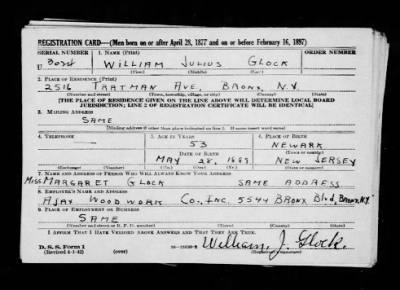 REGISTRATION CARD—(Men born on or after April 28, 1877 and on or before February 16, 1897)
SERIAL NUMBER 1. NAME (Print) ORDER NUMBER
U WILLIAM JULIUS GLOCK
(First) (Middle) (Last)
2. PLACE OF RESIDENCE (Print)
2516 TRATMAN AVE. BRONX, N.Y.
(Number and street) (Town, township, village, or city) (County) (State)
[THE PLACE OF RESIDENCE GIVEN ON THE LINE ABOVE WILL DETERMINE LOCAL BOARD
JURISDICTION; LINE 2 OF REGISTRATION CERTIFICATE WILL BE IDENTICAL]
3. MAILING ADDRESS
SAME
[Mailing address if other than place indicated on line 2. If same insert word same]
4. TELEPHONE 5. AGE IN YEARS 6. PLACE OF BIRTH
53 NEWARK
DATE OF BIRTH (Town or county)
MAY 28, 1889 NEW JERSEY
(Exchange) (Number) (Mo.) (Day) (Yr.) (State or country)
7. NAME AND ADDRESS OF PERSON WHO WILL ALWAYS KNOW YOUR ADDRESS
MISS MARGARET GLOCK SAME ADDRESS
8. EMPLOYER'S NAME AND ADDRESS
AJAX WOOD WORK CO., INC. 5544 BRONX Blvd, BRONX, N.Y.
9. PLACE OF EMPLOYMENT OR BUSINESS
SAME
(Number and street or R. F. D. number) (Town) (County) (State)
I AFFIRM THAT I HAVE VERIFIED ABOVE ANSWERS AND THAT THEY ARE TRUE.
D. S. S. Form 1
(Revised 4-1-42) (over) William J. Glock.
(Registrant's signature)